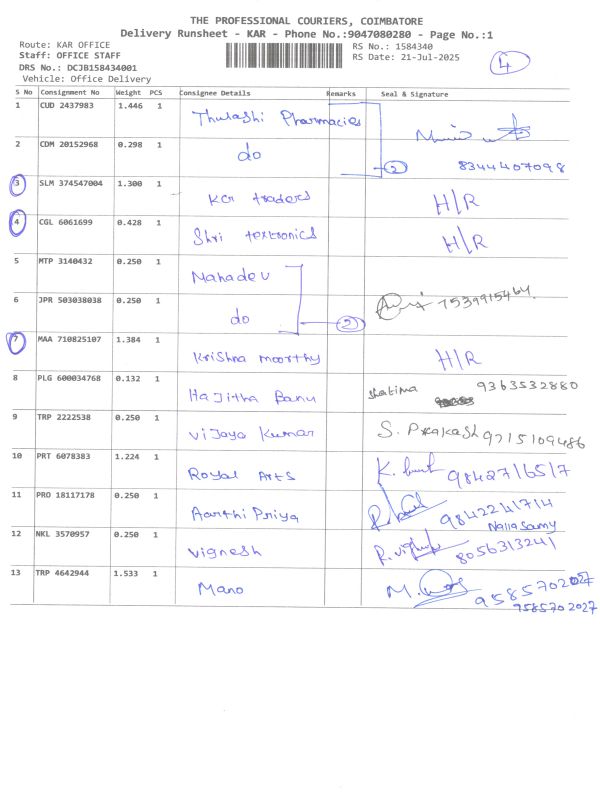 THE PROFESSIONAL COURIERS, COIMBATORE
Delivery Runsheet - KAR - Phone No.:9047080280 - Page No.:1
Route: KAR OFFICE
RS No.: 1584340
Staff: OFFICE STAFF
RS Date: 21-Jul-2025
4
DRS No.: DCJB158434001
Vehicle: Office Delivery
S No Consignment No Weight PCS Consignee Details Remarks Seal & Signature
1 CUD 2437983 1.446 1 Thulashi Pharmacies
2 CDM 20152968 0.298 1 do 2 8344407098
3 SLM 374547004 1.300 1 KCR traders H/R
4 CGL 6061699 0.428 1 Shri textronics H/R
5 MTP 3140432 0.250 1 Mahadev
6 JPR 503038038 0.250 1 do 2 7539915464
7 MAA 710825107 1.384 1 Krishna moorthy H/R
8 PLG 600034768 0.132 1 Hajitha Banu 9363532880
9 TRP 2222538 0.250 1 Vijaya Kumar S. Prakash 9715109486
10 PRT 6078383 1.224 1 Royal Arts 9842716517
11 PRO 18117178 0.250 1 Aarthi Priya 9842241714
Nallasamy
12 NKL 3570957 0.250 1 Vignesh 8056313241
13 TRP 4642944 1.533 1 Mano 9585702027
9585702027